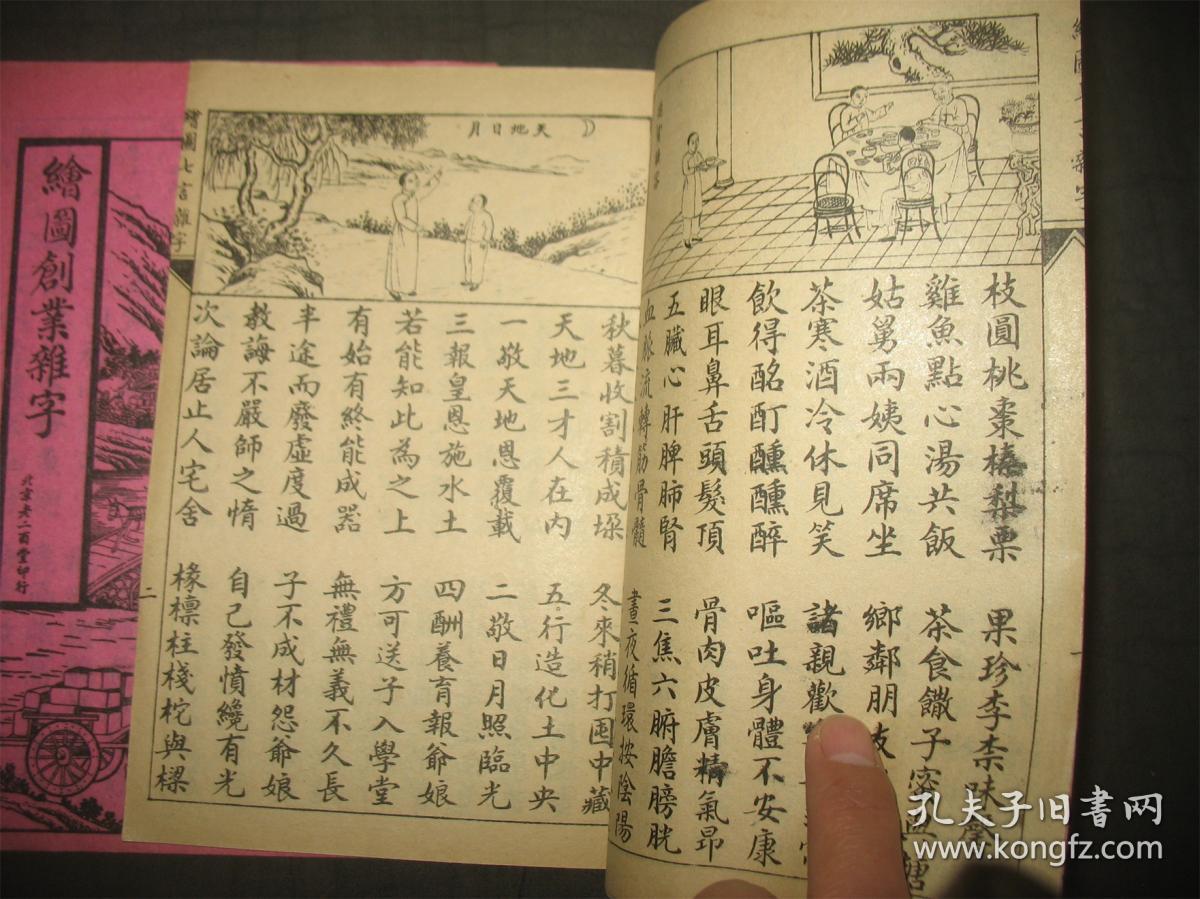 枝圓桃棗榛梨栗
果珍李柰味
雞魚點心湯共飯
茶食饊子
姑舅兩姨同席坐
鄉鄰朋友
茶寒酒冷休見笑
諸親歡
飲得酩酊醺醺醉
嘔吐身體不安康
眼耳鼻舌頭髮頂
骨肉皮膚精氣昂
五臟心肝脾肺腎
三焦六腑膽膀胱
血脈流轉筋骨髓
晝夜循環按陰陽
天地日月
秋暮收割積成垜
冬來稍打囤中藏
天地三才人在內
五行造化土中央
一敬天地恩覆載
二敬日月照臨光
三報皇恩施水土
四酬養育報爺娘
若能知此為之上
方可送子入學堂
有始有終能成器
無禮無義不久長
半途而廢虛度過
子不成材怨爺娘
教誨不嚴師之惰
自己發憤纔有光
次論居止人宅舍
椽檩柱棧柁與樑
繪圖七言雜字
二
繪圖創業雜字
北京老二酉堂印行
孔夫子旧书网
www.kongfz.com